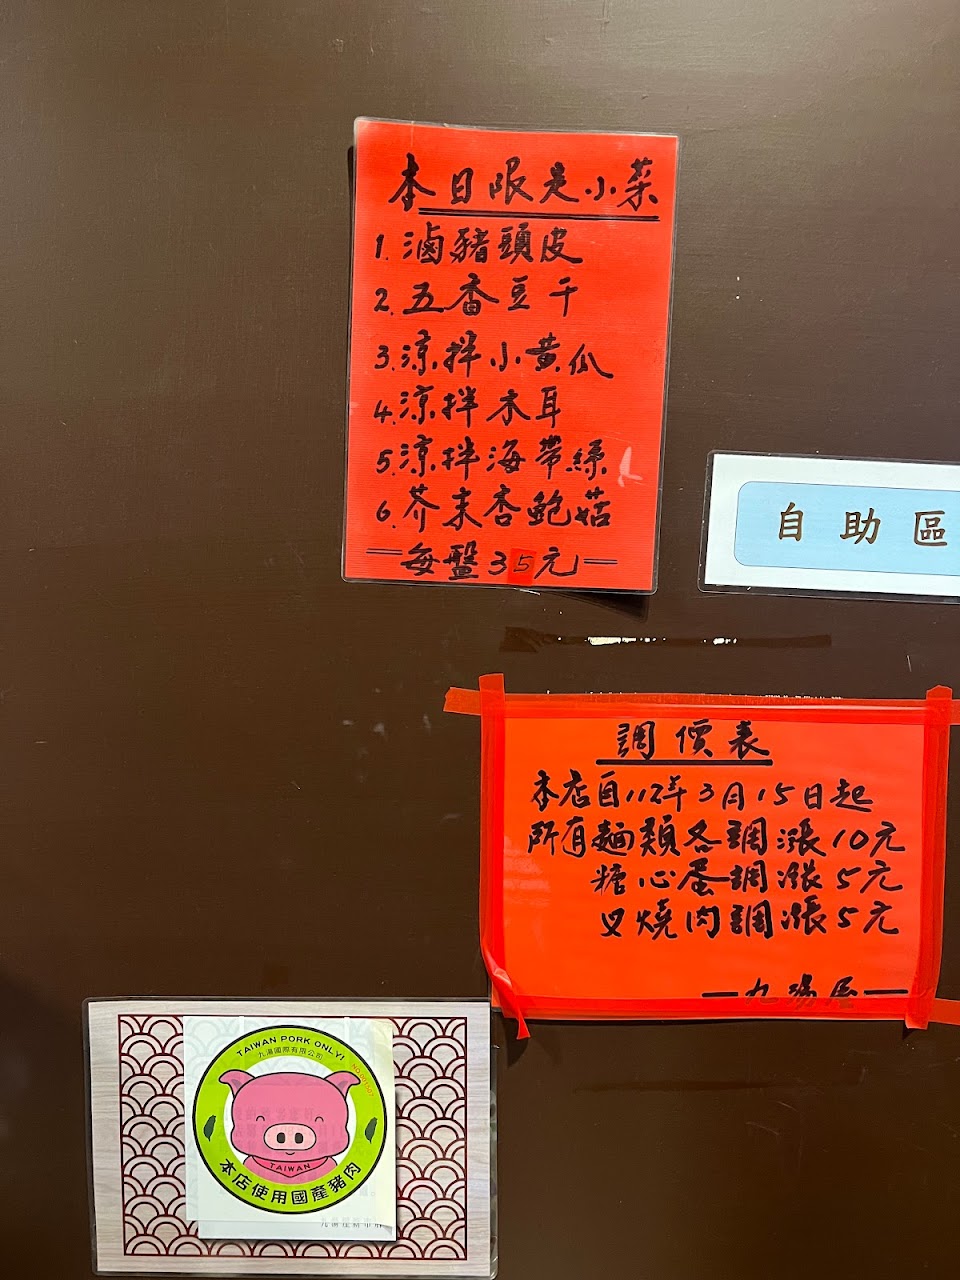 本日限定小菜
1. 滷豬頭皮
2. 五香豆干
3. 涼拌小黃瓜
4. 涼拌木耳
5. 涼拌海帶絲
6. 芥末杏鮑菇
每盤35元
自助區
調價表
本店自112年3月15日起
所有麵類各調漲10元
糖心蛋調漲5元
叉燒肉調漲5元
九湯屋
TAIWAN PORK ONLY!
九湯國際有限公司
TAIWAN
本店使用國產豬肉